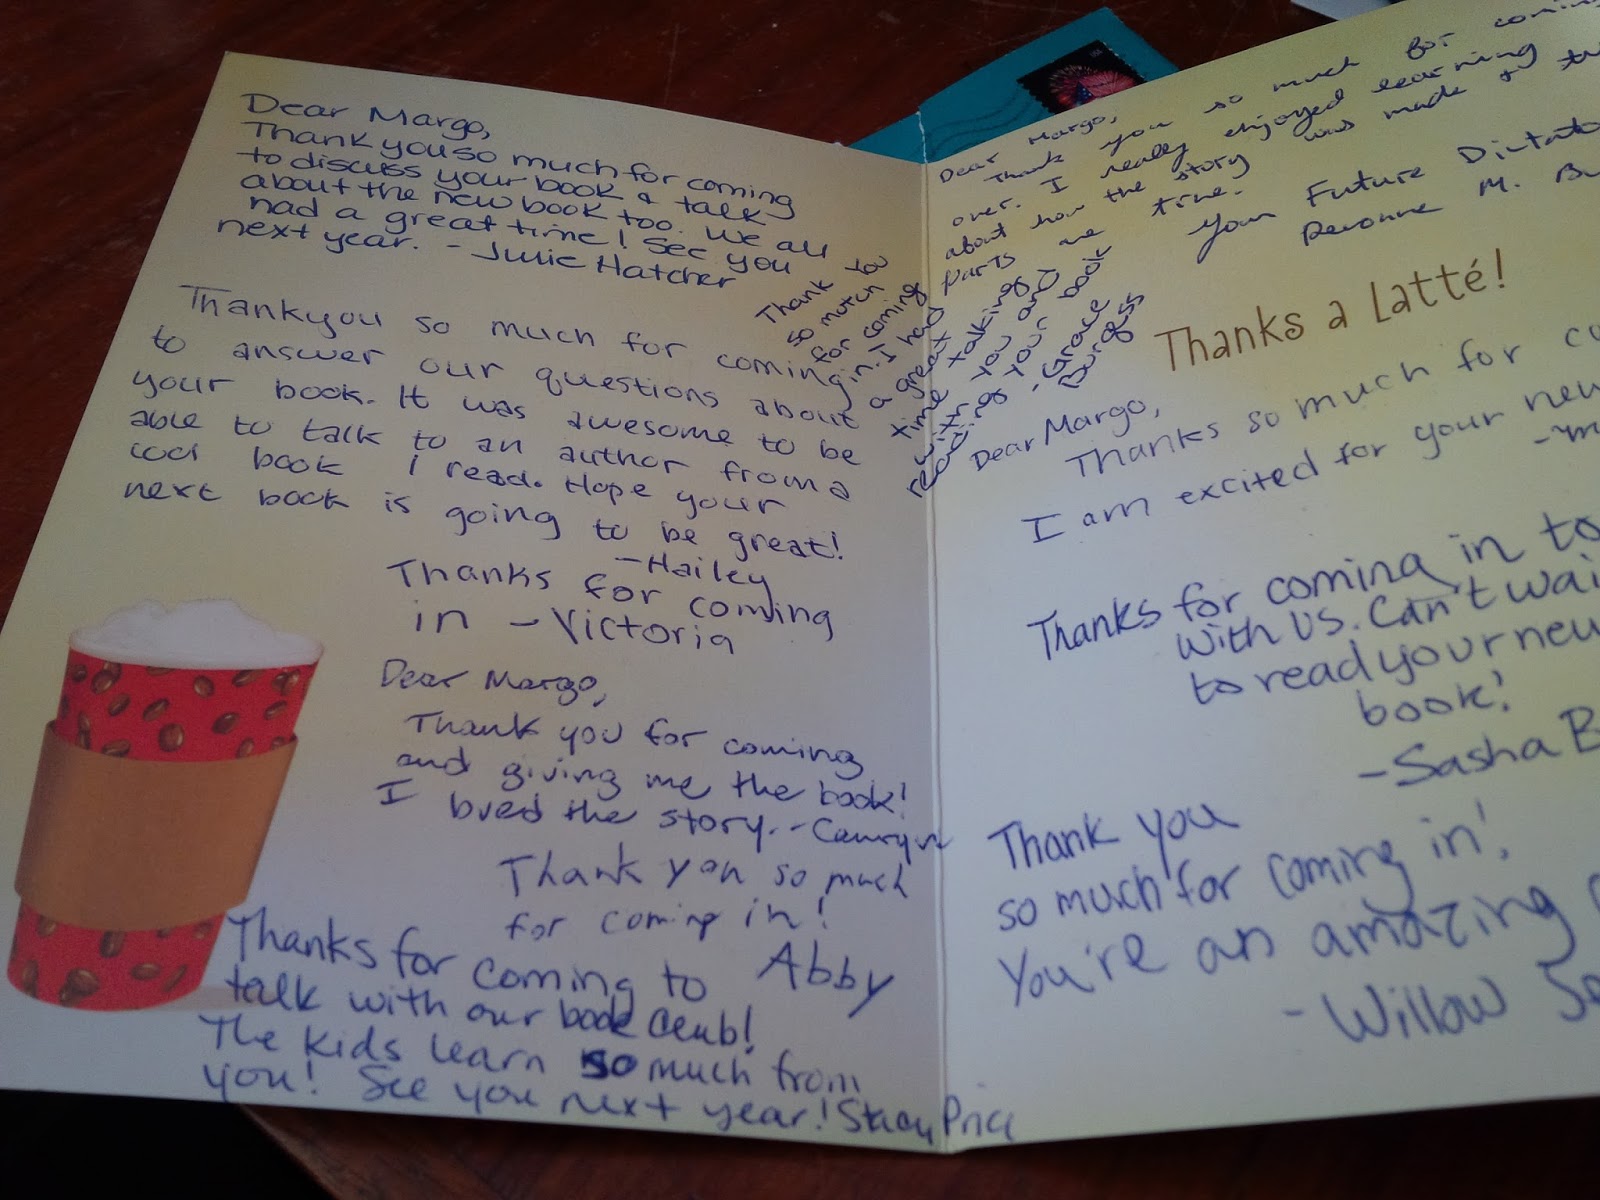 Dear Margo,
Thank you so much for coming
to discuss your book & talk
about the new book too. We all
had a great time! See you
next year. - Julie Hatcher
Thankyou so much for coming
to answer our questions about
your book. It was awesome to be
able to talk to an author from a
cool book I read. Hope your
next book is going to be great!
-Hailey
Thanks for coming
in -Victoria
Dear Margo,
Thank you for coming
and giving me the book!
I loved the story. -Camryn
Thank you so much
for coming in!
Abby
Thanks for coming to
talk with our book club!
The kids learn so much from
you! See you next year! Stacy Price
Thank You
so mutch
for coming
in. I had
a great
time talking
with you and
reading your book
-Grace
Burgess
Dear Margo,
Thank you so much for coming
over. I really enjoyed learning
about how the story was made &
parts are true.
Your Future Dictator
M.
Thanks a Latté!
Dear Margo,
Thanks so much for
I am excited for your new
Thanks for coming in to
with us. Can't wait
to read your new
book!
-Sasha B
Thank you
so much for coming in!
You're an amazing
-Willow